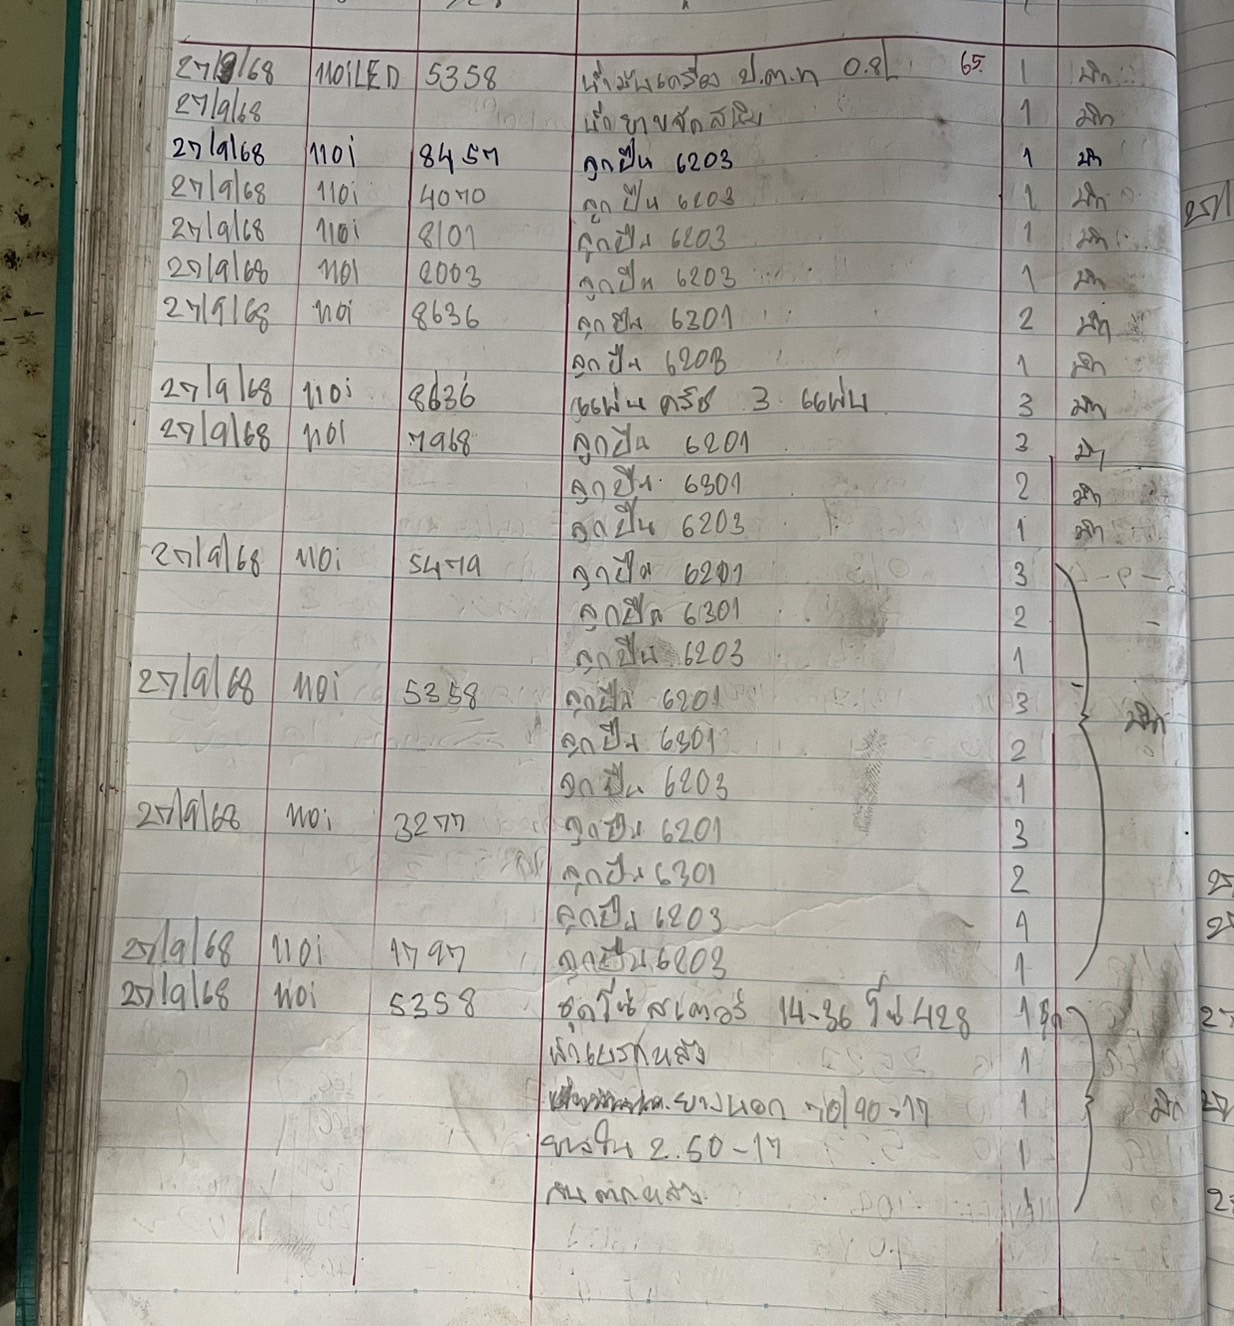 27/9/68 110iLED 5358 น้ำมันเครื่อง ป.ต.ท 0.8L 65. 1
27/9/68 น้ำยาขัดสนิม 1
27/9/68 110i 8457 ลูกปืน 6203 1
27/9/68 110i 4070 ลูกปืน 6203 1
27/9/68 110i 8101 ลูกปืน 6203 1
27/9/68 110i 2003 ลูกปืน 6203 1
27/9/68 110i 8636 ลูกปืน 6301 2
ลูกปืน 6203 1
27/9/68 110i 8636 แผ่นครัช 3 แผ่น 3
27/9/68 110i 7968 ลูกปืน 6201 3
ลูกปืน 6301 2
ลูกปืน 6203 1
27/9/68 110i 5479 ลูกปืน 6201 3
ลูกปืน 6301 2
ลูกปืน 6203 1
27/9/68 110i 5358 ลูกปืน 6201 3
ลูกปืน 6301 2
ลูกปืน 6203 1
27/9/68 110i 3277 ลูกปืน 6201 3
ลูกปืน 6301 2
ลูกปืน 6203 1
27/9/68 110i 1797 ลูกปืน 6203 1
27/9/68 110i 5358 ชุดโซ่สเตอร์ 14-36 โซ่ 428 1 ชุด
ผ้าเบรกหลัง 1
ยางนอก 70/90-17 1
ยางใน 2.50-17 1
หลัง 1